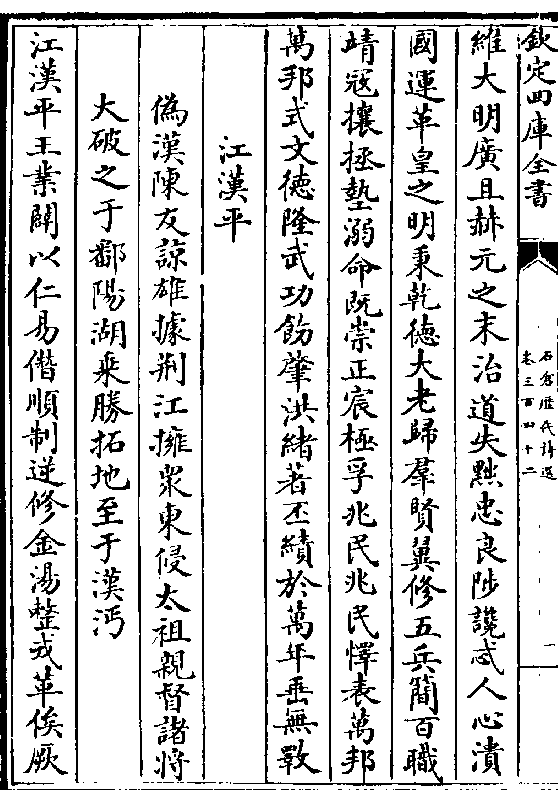 欽定四庫全書
石倉歷代詩選
卷三百四十二
一
維大明廣且赫元之末治道失黜忠良陟讒忒人心潰
國運革皇之明秉乾德大老歸羣賢翼修五兵簡百職
靖寇攘拯墊溺命既崇正宸極孚兆民兆民懌表萬邦
萬邦式文德隆武功飭肇洪緒著丕績於萬年垂無斁
江漢平
偽漢陳友諒雄據荆江擁衆東侵太祖親督諸將
大破之于鄱陽湖乘勝拓地至于漢沔
江漢平王業闢以仁易僭順制逆修金湯整戎革俟厥